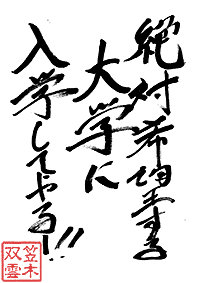 絶対希望する
大学に
入学してやるー!!
笠木
双雲